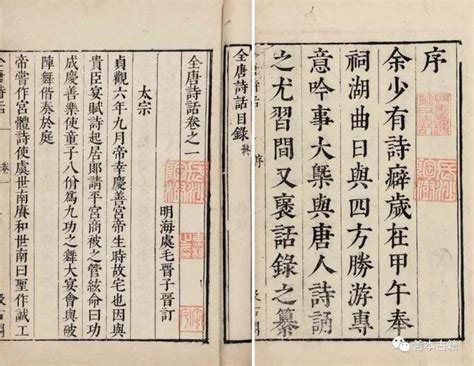 序
余少有詩癖歲在甲午奉
祠湖曲日與四方勝游專
意吟事大槩與唐人詩誦
之尤習間又裒話錄之纂
全唐詩話目錄
全唐詩話卷之一
明海虞毛晉子晉訂
太宗
貞觀六年九月帝幸慶善宮帝生時故宅也因與
貴臣宴賦詩起居郎請平宮商被之管絃命曰功
成慶善樂使童子八佾爲九功之舞大宴會與破
陣舞偕奏於庭
帝嘗作宮體詩使虞世南賡和世南曰聖作誠工
善本古籍